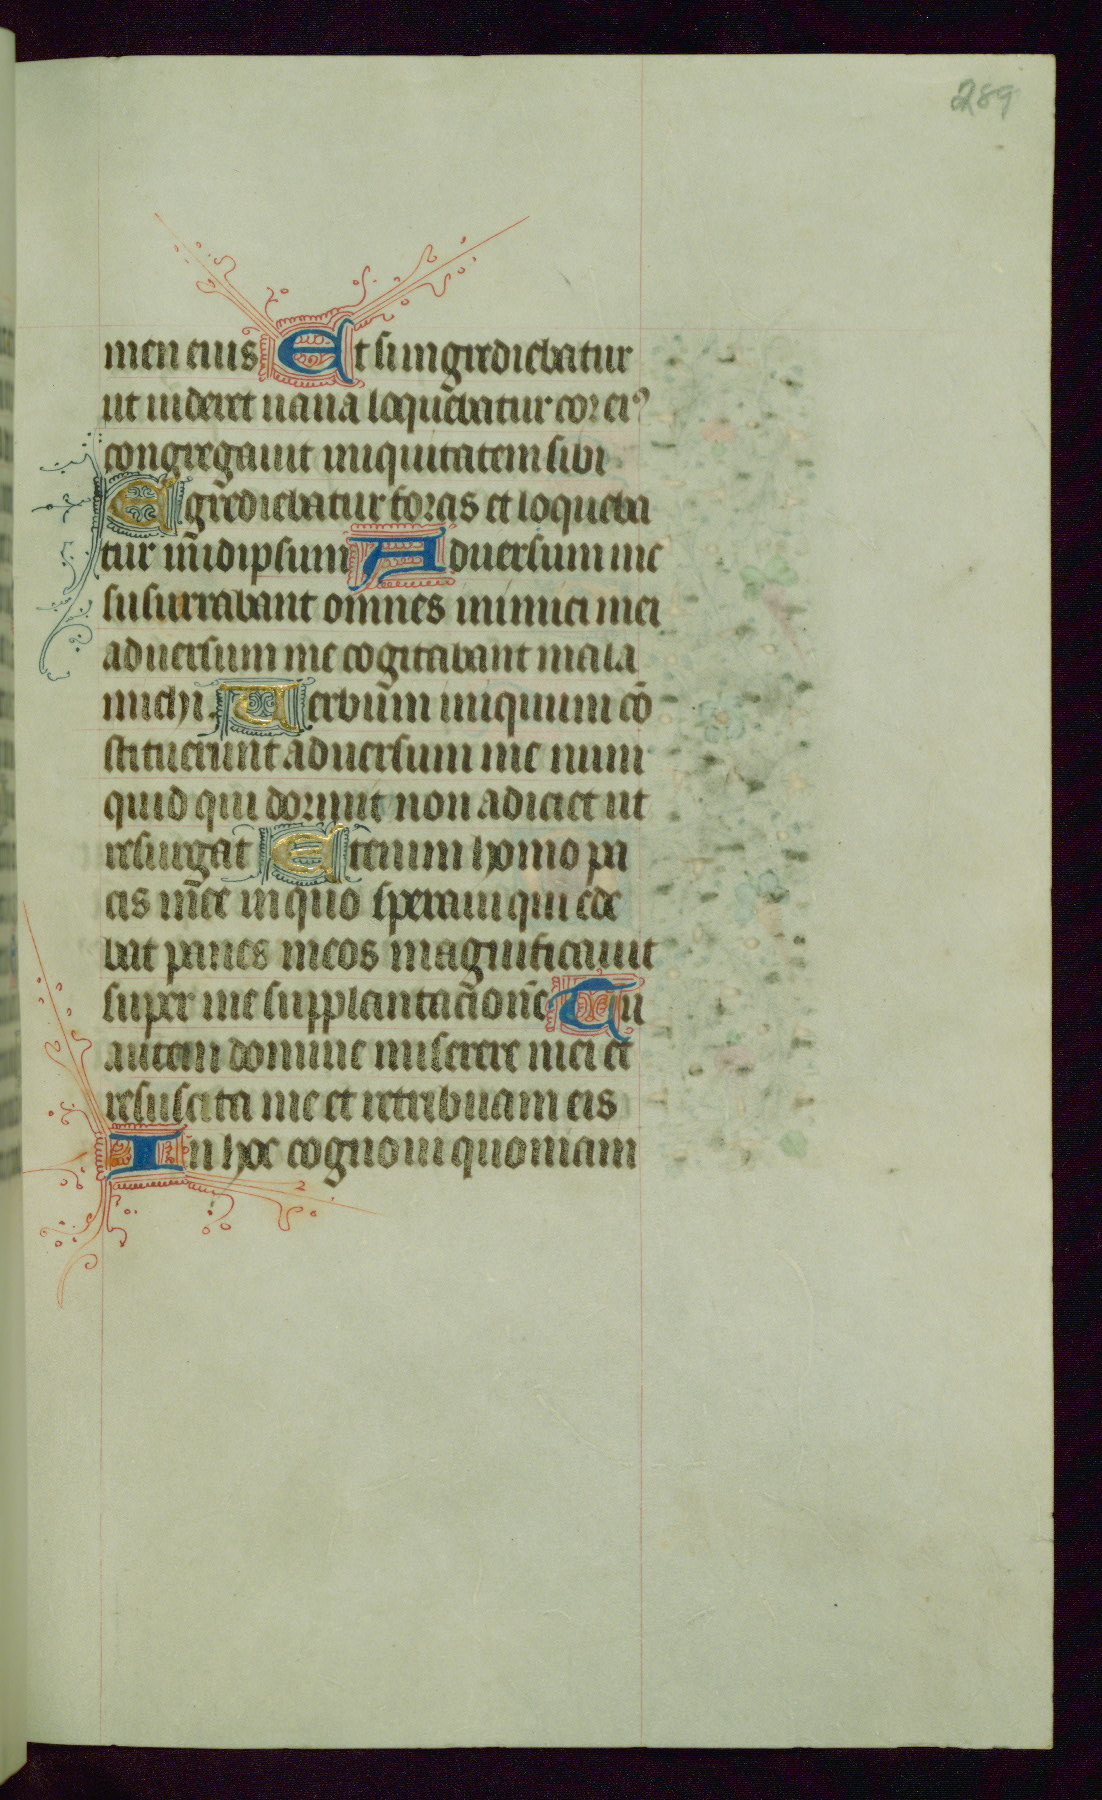 289
men eius Et si ingrediebatur
ut uideret uana loquebatur cor eiꝰ
congregauit iniquitatem sibi
Egrediebatur foras et loqueba
tur in idipsum Aduersum me
susurrabant omnes inimici mei
aduersum me cogitabant mala
michi. Uerbum iniquum cō
stituerunt aduersum me num
quid qui dormit non adiciet ut
resurgat Etenim homo pa
cis mee in quo speraui qui ede
bat panes meos magnificauit
super me supplantacionē Tu
autem domine miserere mei et
resuscita me et retribuam eis
In hoc cognoui quoniam